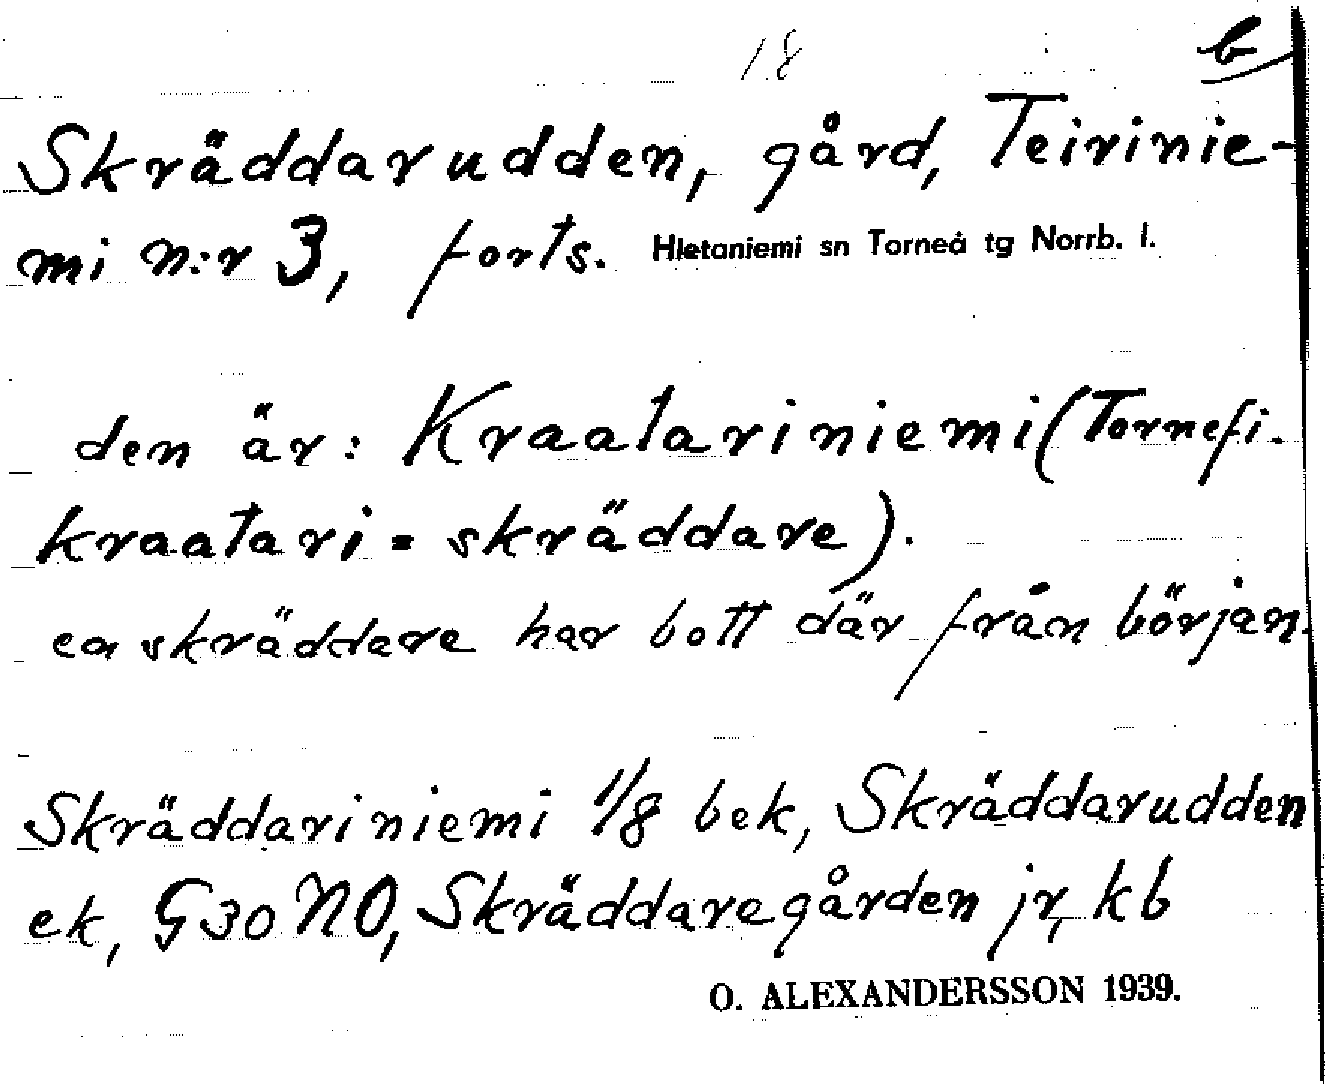 18 b
Skräddarudden, gård, Teirinie-
mi n:r 3, forts. Hietaniemi sn Torneå tg Norrb. l.
den är: Kraatariniemi (Tornefi.
kraatari = skräddare).
en skräddare har bott där från början.
Skräddariniemi 1/8 bek, Skräddarudden
ek, G30NO, Skräddaregården jr, kb
O. ALEXANDERSSON 1939.